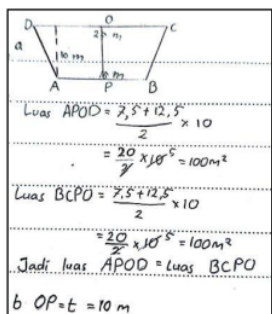 D O C
a 10 m 25 m
A P B
Luas APOD = 7,5+12,5 / 2 × 10
= 20/2 × 10 5 = 100 m²
Luas BCPO = 7,5+12,5 / 2 × 10
= 20/2 × 10 5 = 100 m²
Jadi luas APOD = Luas BCPO
b OP = t = 10 m